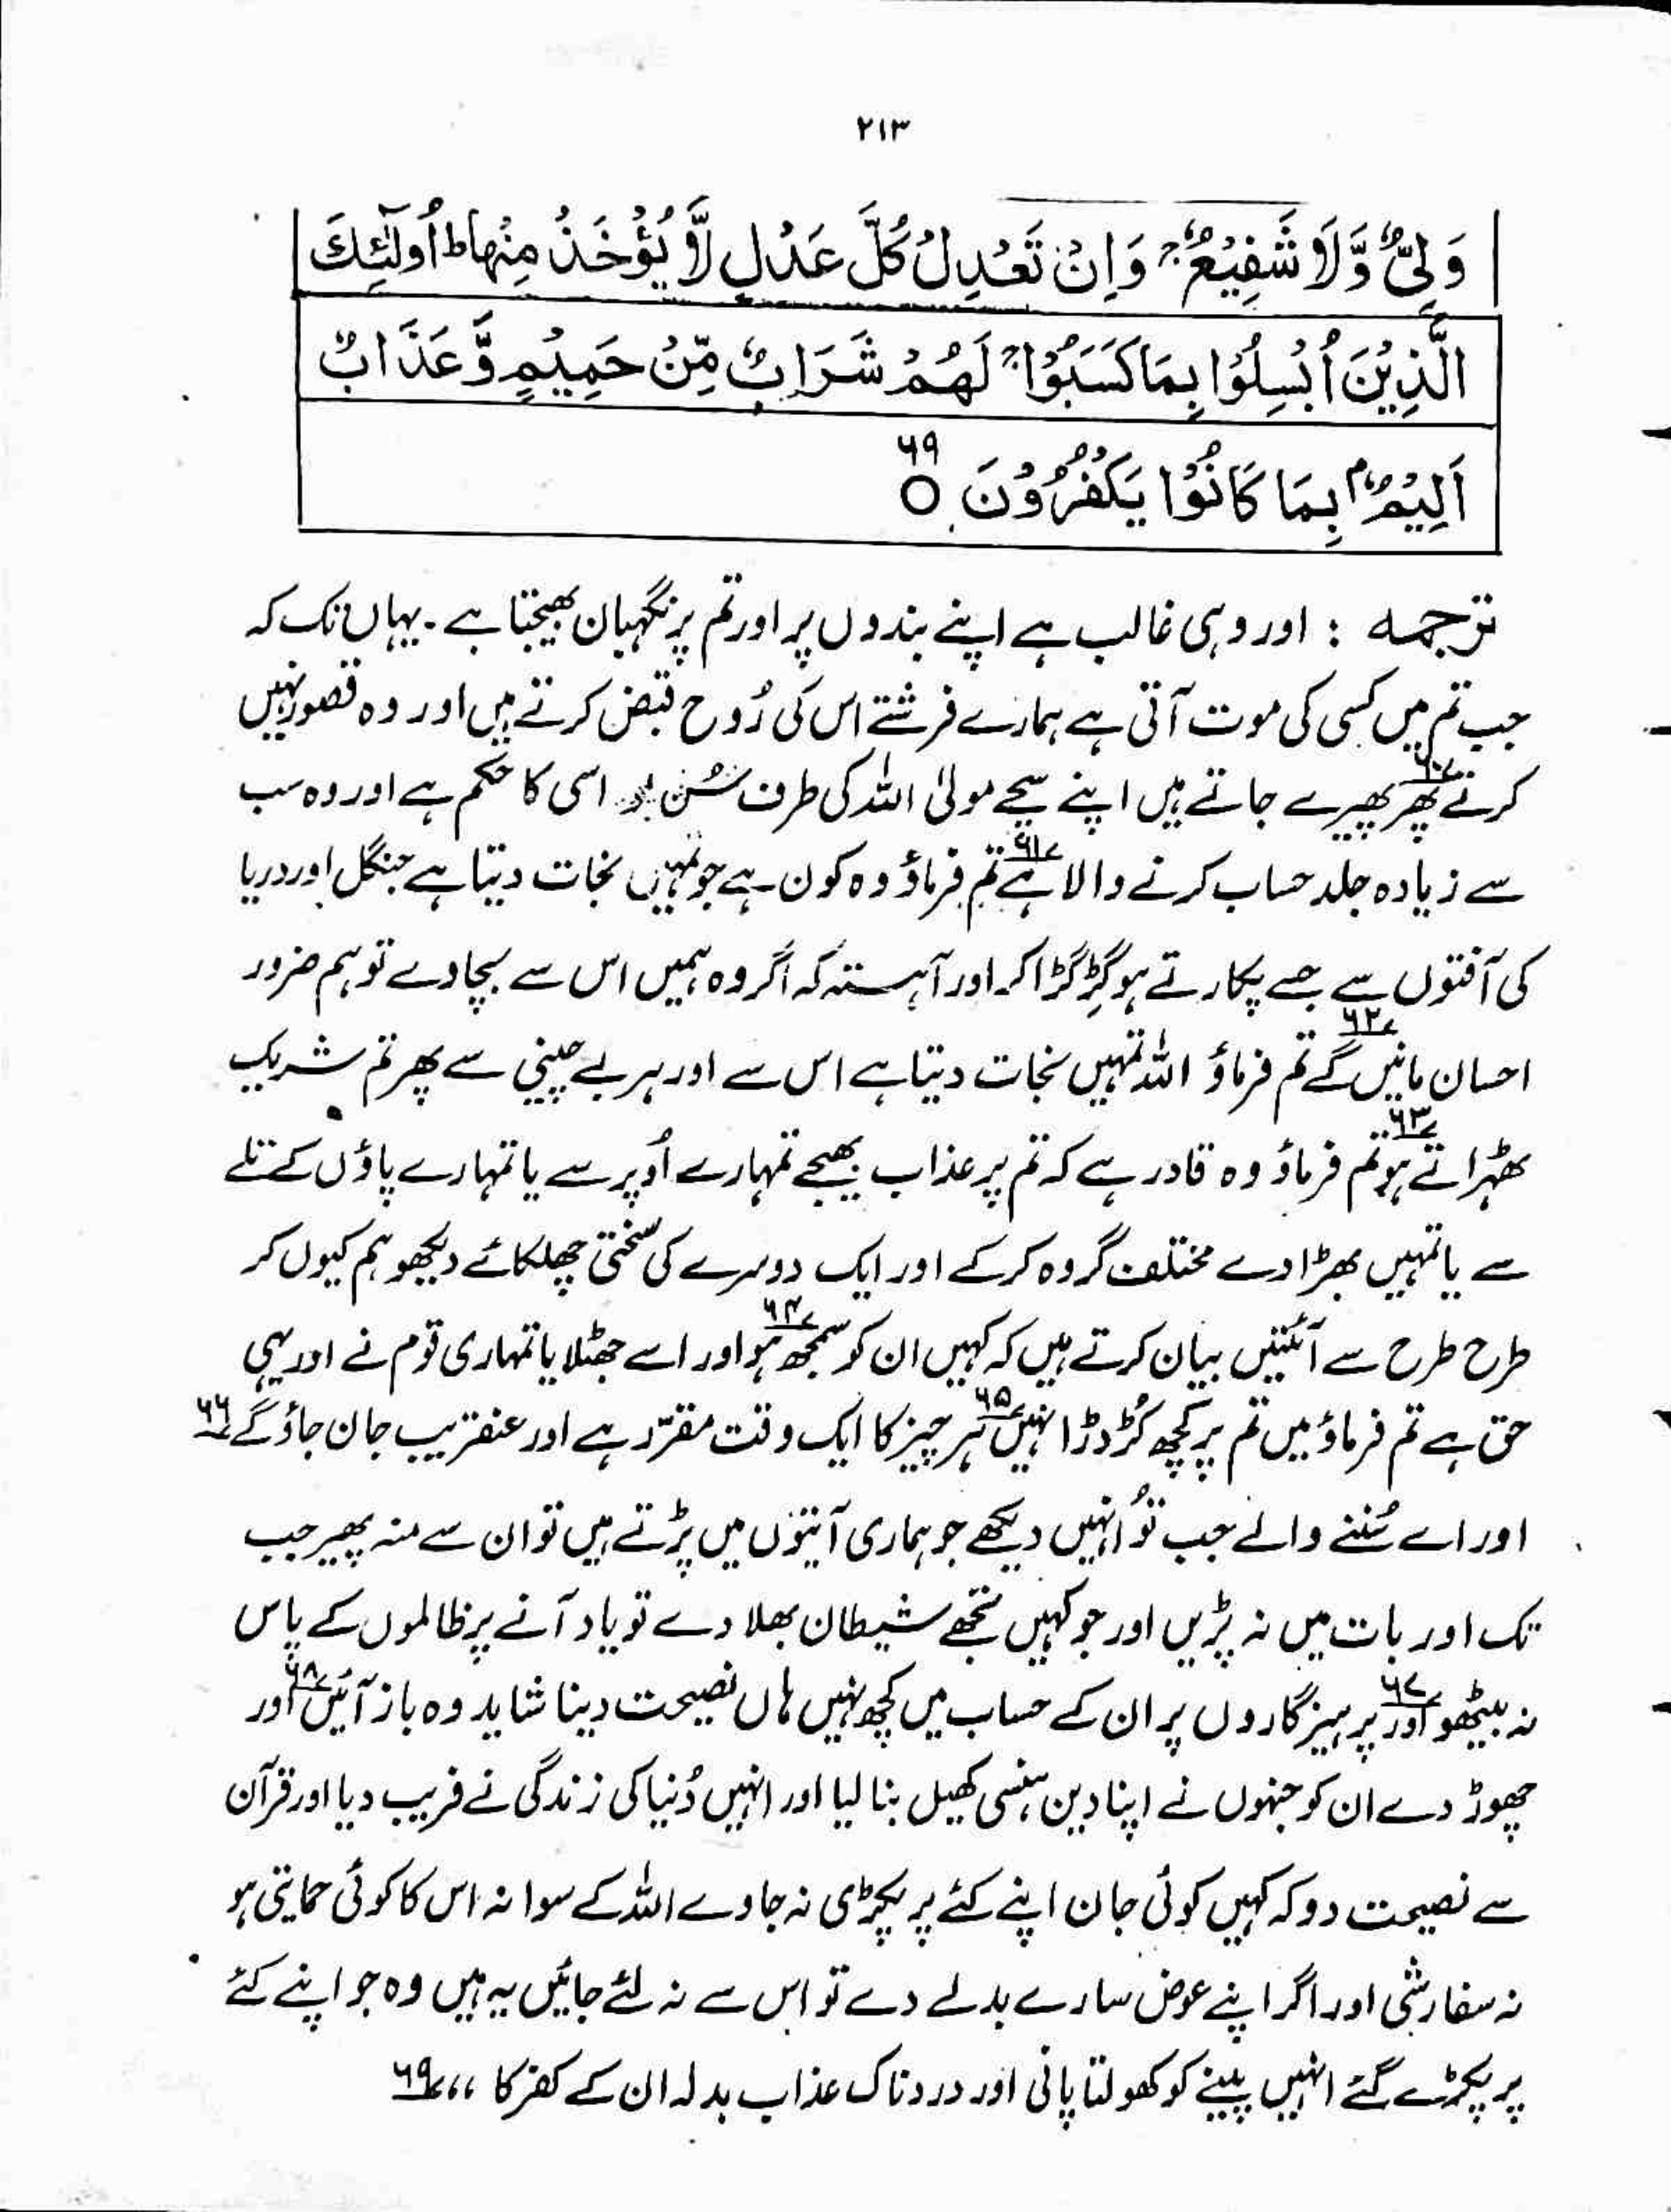 ۲۱۳
وَلِیٌّ وَّلَا شَفِیْعٌ ۚ وَاِنْ تَعْدِلْ كُلَّ عَدْلٍ لَّا یُؤْخَذْ مِنْهَا ط اُولٰٓئِكَ
الَّذِیْنَ اُبْسِلُوْا بِمَا كَسَبُوْا ۚ لَهُمْ شَرَابٌ مِّنْ حَمِیْمٍ وَّعَذَابٌ
اَلِیْمٌۢ بِمَا كَانُوْا یَكْفُرُوْنَ ○ ۶۹
ترجمہ : اور وہی غالب ہے اپنے بندوں پر اور تم پر نگہبان بھیجتا ہے ۔ یہاں تک کہ
جب تم میں کسی کی موت آتی ہے ہمارے فرشتے اس کی رُوح قبض کرتے ہیں اور وہ قصور نہیں
کرتے پھر پھیرے جاتے ہیں اپنے سچے مولیٰ اللہ کی طرف سُن لو اسی کا حکم ہے اور وہ سب
سے زیادہ جلد حساب کرنے والا ہے ؁۶۱ تم فرماؤ وہ کون ہے جو تمہیں نجات دیتا ہے جنگل اور دریا
کی آفتوں سے جسے پکارتے ہو گِڑگڑا کر اور آہستہ کہ اگر وہ ہمیں اس سے بچا دے تو ہم ضرور
احسان مانیں گے ؁۶۲ تم فرماؤ اللہ تمہیں نجات دیتا ہے اس سے اور ہر بے چینی سے پھر تم شریک
ٹھہراتے ہو ؁۶۳ تم فرماؤ وہ قادر ہے کہ تم پر عذاب بھیجے تمہارے اُوپر سے یا تمہارے پاؤں کے تلے
سے یا تمہیں بھڑا دے مختلف گروہ کرکے اور ایک دوسرے کی سختی چھلکائے دیکھو ہم کیوں کر
طرح طرح سے آئتیں بیان کرتے ہیں کہ کہیں ان کو سمجھ ہو ؁۶۴ اور اسے جھٹلایا تمہاری قوم نے اور یہی
حق ہے تم فرماؤ میں تم پر کچھ کڑوڑا نہیں ؁۶۵ ہر چیز کا ایک وقت مقرّر ہے اور عنقریب جان جاؤ گے ؁۶۶
اور اے سُننے والے جب تُو انہیں دیکھے جو ہماری آیتوں میں پڑتے ہیں تو ان سے منہ پھیر جب
تک اور بات میں نہ پڑیں اور جو کہیں تجھے شیطان بھلا دے تو یاد آنے پر ظالموں کے پاس
نہ بیٹھو ؁۶۷ اور پرہیزگاروں پر ان کے حساب میں کچھ نہیں ہاں نصیحت دینا شاید وہ باز آئیں ؁۶۸ اور
چھوڑ دے ان کو جنہوں نے اپنا دین ہنسی کھیل بنا لیا اور انہیں دُنیا کی زندگی نے فریب دیا اور قرآن
سے نصیحت دو کہ کہیں کوئی جان اپنے کئے پر پکڑی نہ جاوے اللہ کے سوا نہ اس کا کوئی حمایتی ہو
نہ سفارشی اور اگر اپنے عوض سارے بدلے دے تو اس سے نہ لئے جائیں یہ ہیں وہ جو اپنے کئے
پر پکڑے گئے انہیں پینے کو کھولتا پانی اور دردناک عذاب بدلہ ان کے کفر کا ،، ؁۶۹